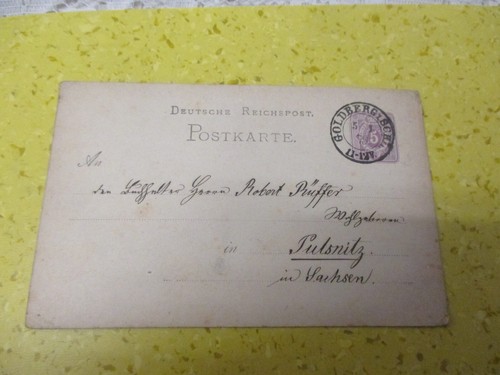 DEUTSCHE REICHSPOST.
POSTKARTE.
GOLDBERG
5
11-12V.
An
den Buchhalter Herrn Robert Püffer
Wohlgeboren
in Pulsnitz
in Sachsen.